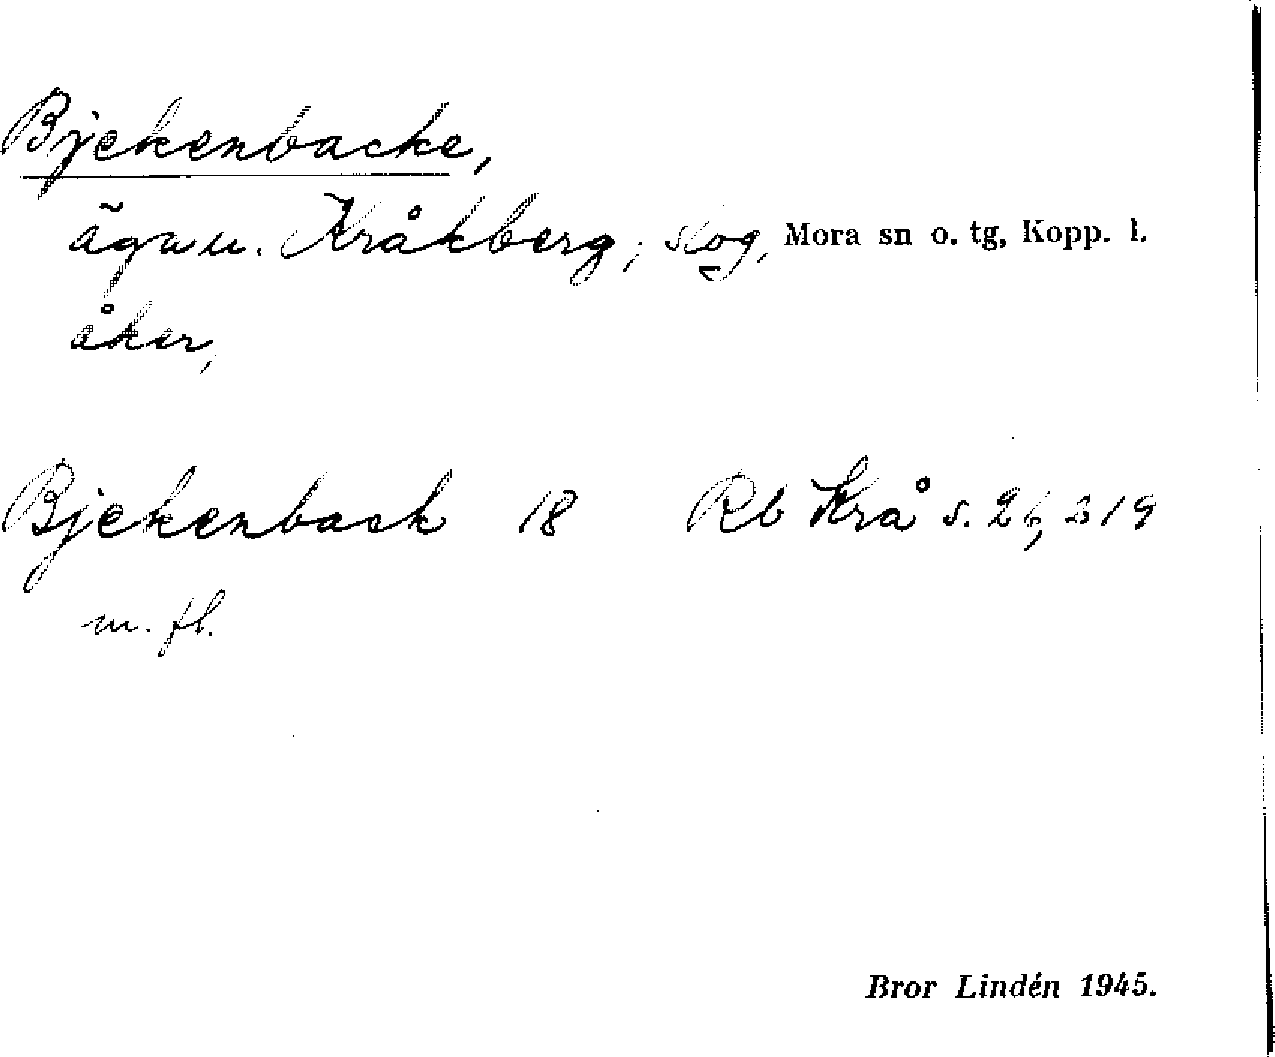 Bjekenbacke,
äga u. Kråkberg; slog, Mora sn o. tg, Kopp. l.
åker,
Bjekenback 18 Rb Krå s. 26, 319
m. fl.
Bror Lindén 1945.